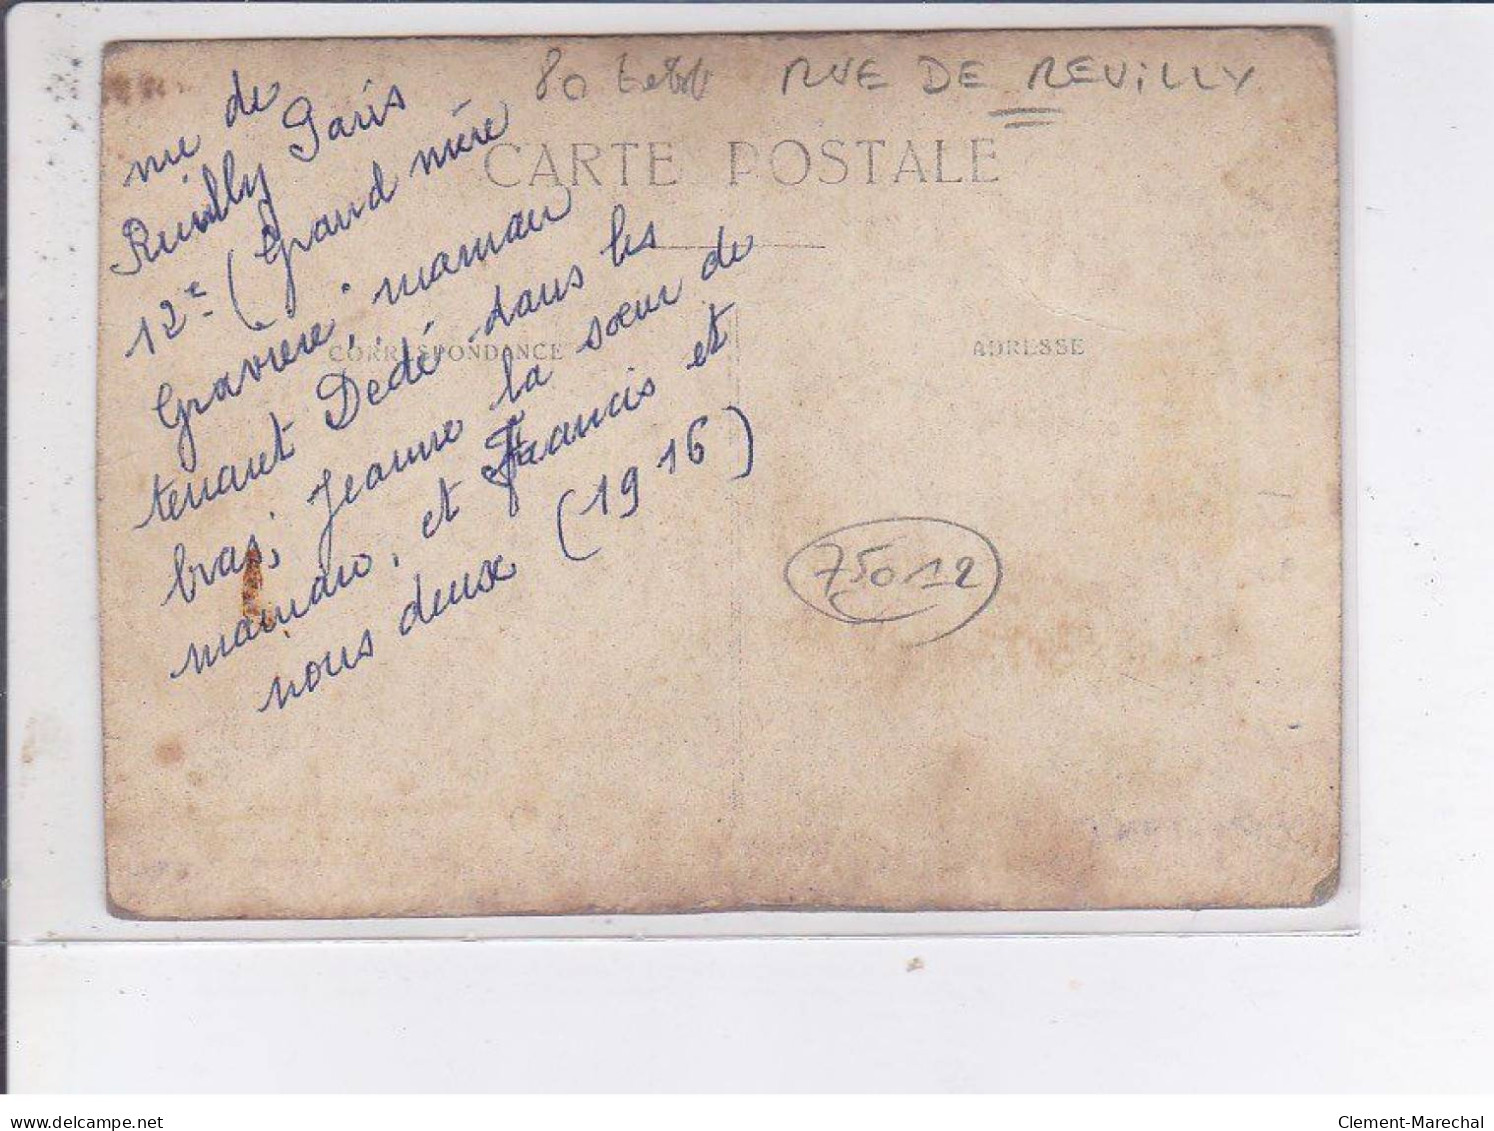 80 RUE DE REUILLY
CARTE POSTALE
rue de
Reuilly Paris
12e (Grand mère
Gravière, maman
tenant Dedé dans les
bras, Jeanne la sœur de
maman, et Francis et
nous deux (1916)
CORRESPONDANCE
ADRESSE
75012
www.delcampe.net
Clement-Marechal